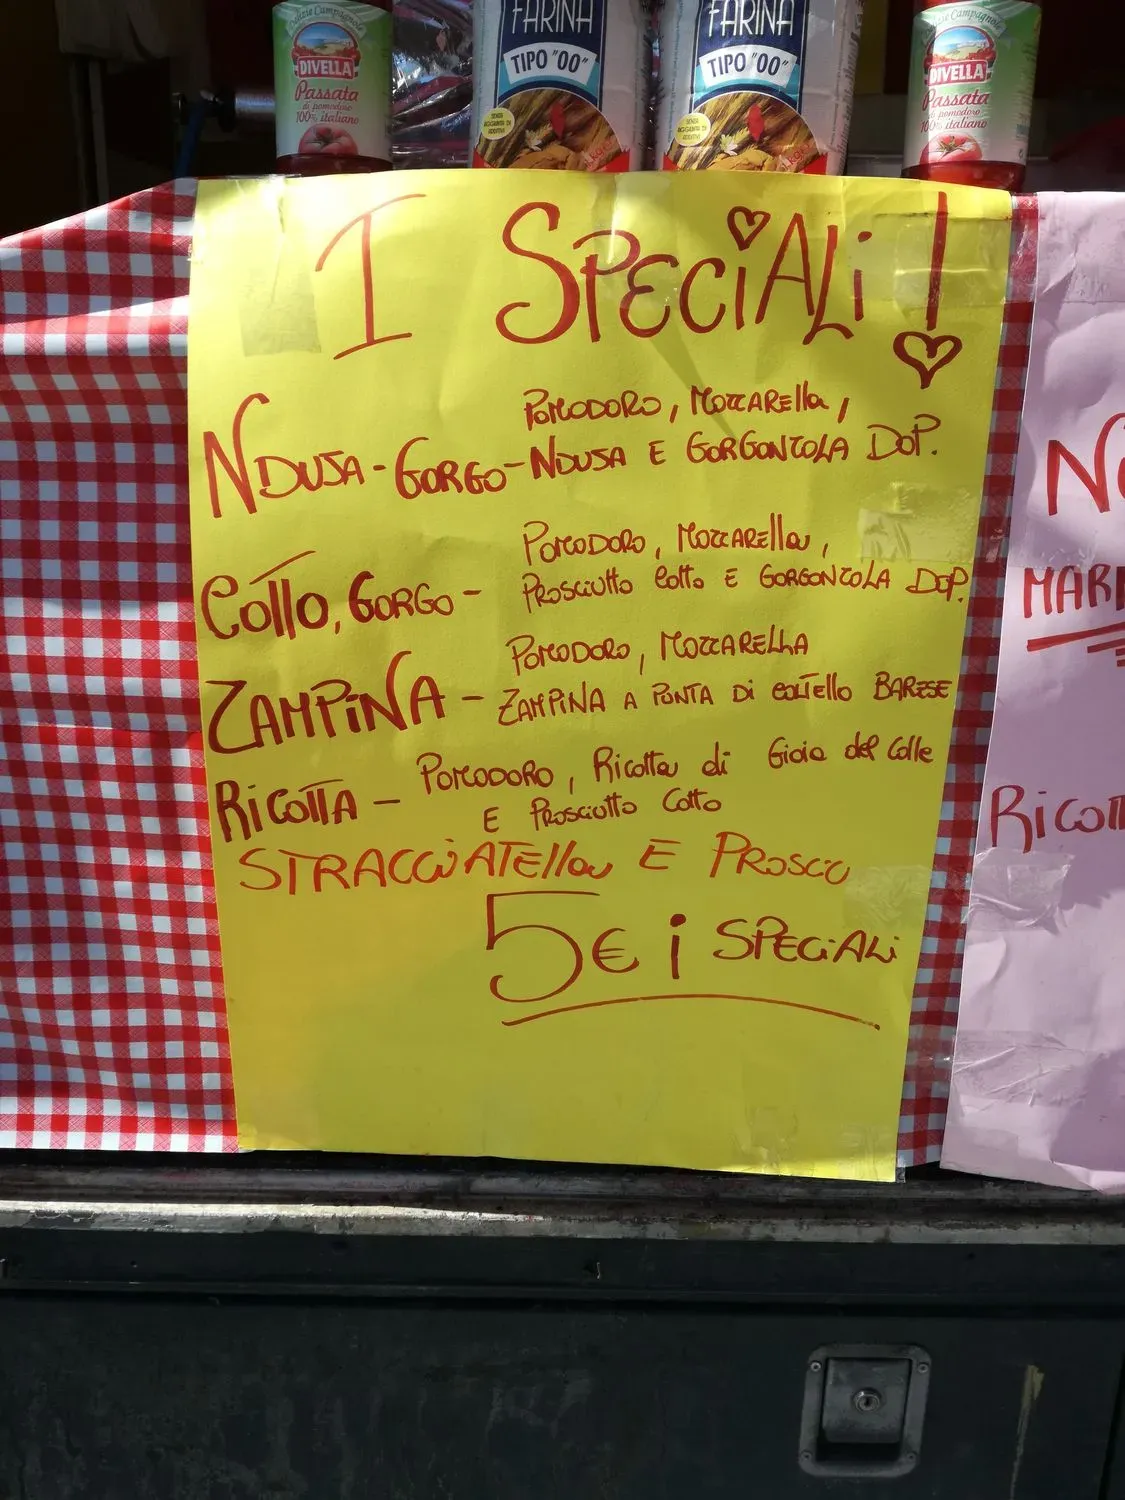 Delizie Campagnole
DIVELLA
Passata
di pomodoro
100% italiano
FARINA
TIPO "00"
SENZA
AGGIUNTA DI
ADDITIVI
FARINA
TIPO "00"
SENZA
AGGIUNTA DI
ADDITIVI
Delizie Campagnole
DIVELLA
Passata
di pomodoro
100% italiano
I SPECIALI!
POMODORO, MOZZARElla,
NDUJA - GORGO - NDUJA E GORGONZOLA DOP.
POMODORO, MOZZARElla,
COTTO, GORGO - PROSCIUTTO COTTO E GORGONZOLA DOP.
POMODORO, MOZZARELLA
ZAMPINA - ZAMPINA A PUNTA DI COLTELLO BARESE
POMODORO, RICOTTA di Gioia del Colle
RICOTTA - E PROSCIUTTO COTTO
STRACCIATElla E PROSCIU
5€ i SPECIALI
MAR
RICOTT